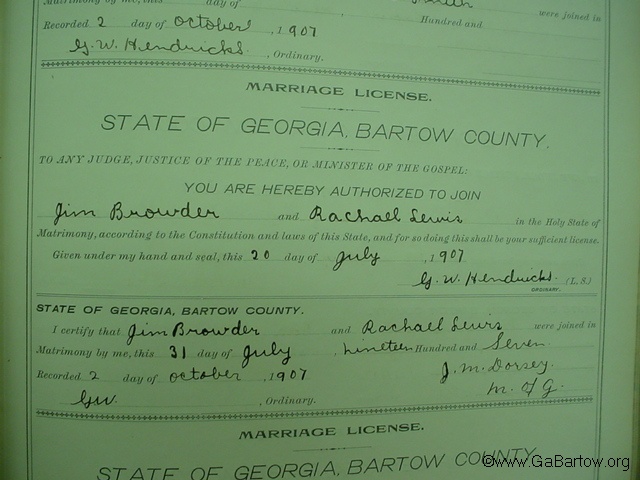 Matrimony by me, this day of Smith were joined in
Recorded 2 day of October, 1907 Hundred and
G. W. Hendricks, Ordinary.
MARRIAGE LICENSE.
STATE OF GEORGIA, BARTOW COUNTY.
TO ANY JUDGE, JUSTICE OF THE PEACE, OR MINISTER OF THE GOSPEL:
YOU ARE HEREBY AUTHORIZED TO JOIN
Jim Browder and Rachael Lewis in the Holy State of
Matrimony, according to the Constitution and laws of this State, and for so doing this shall be your sufficient license.
Given under my hand and seal, this 20 day of July, 1907
G. W. Hendricks. (L. S.)
ORDINARY.
STATE OF GEORGIA, BARTOW COUNTY.
I certify that Jim Browder and Rachael Lewis were joined in
Matrimony by me, this 31 day of July, Nineteen Hundred and Seven
Recorded 2 day of October, 1907 J. M. Dorsey.
GW. , Ordinary. M. F G.
MARRIAGE LICENSE.
STATE OF GEORGIA, BARTOW COUNTY.
©www.GaBartow.org